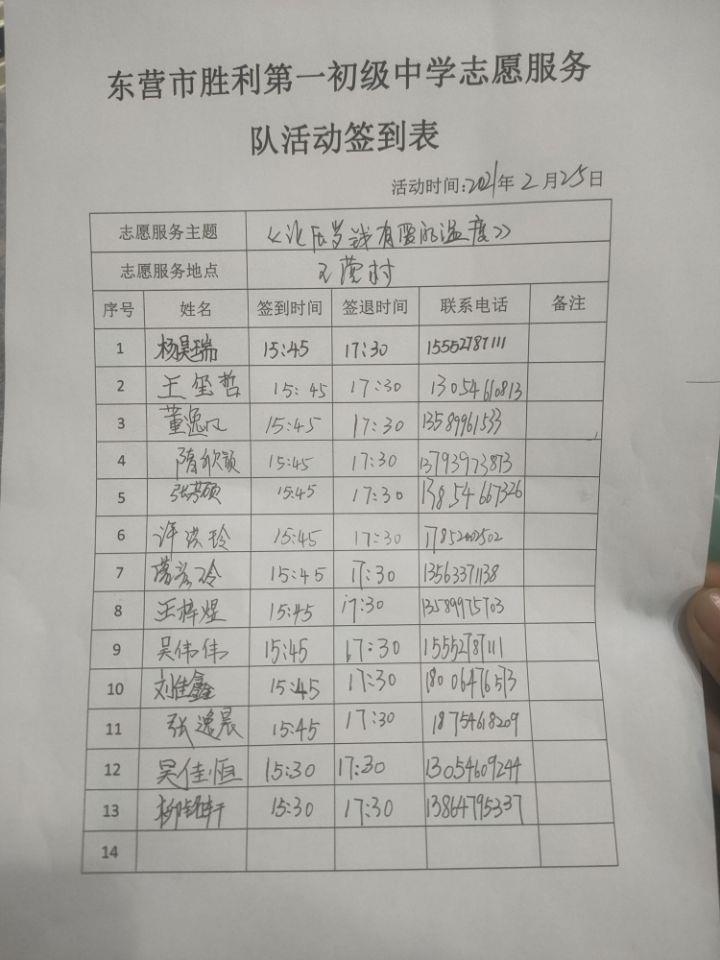 东营市胜利第一初级中学志愿服务
队活动签到表
活动时间:2021年 2 月 25 日
志愿服务主题 《让压岁钱有爱的温度》
志愿服务地点 王营村
序号 姓名 签到时间 签退时间 联系电话 备注
1 杨昊瑞 15:45 17:30 15552787111
2 王玺哲 15:45 17:30 13054610813
3 董逸凡 15:45 17:30 13589961533
4 隋欣颖 15:45 17:30 13793973873
5 张芳硕 15:45 17:30 13854667326
6 许洪玲 15:45 17:30
7 15:45 17:30 13563371138
8 王梓煜 15:45 17:30 13589975703
9 吴伟伟 15:45 17:30 15552787111
10 刘佳鑫 15:45 17:30 18006476573
11 张逸晨 15:45 17:30 18754618209
12 吴佳恒 15:30 17:30 13054609244
13 15:30 17:30 13864795337
14